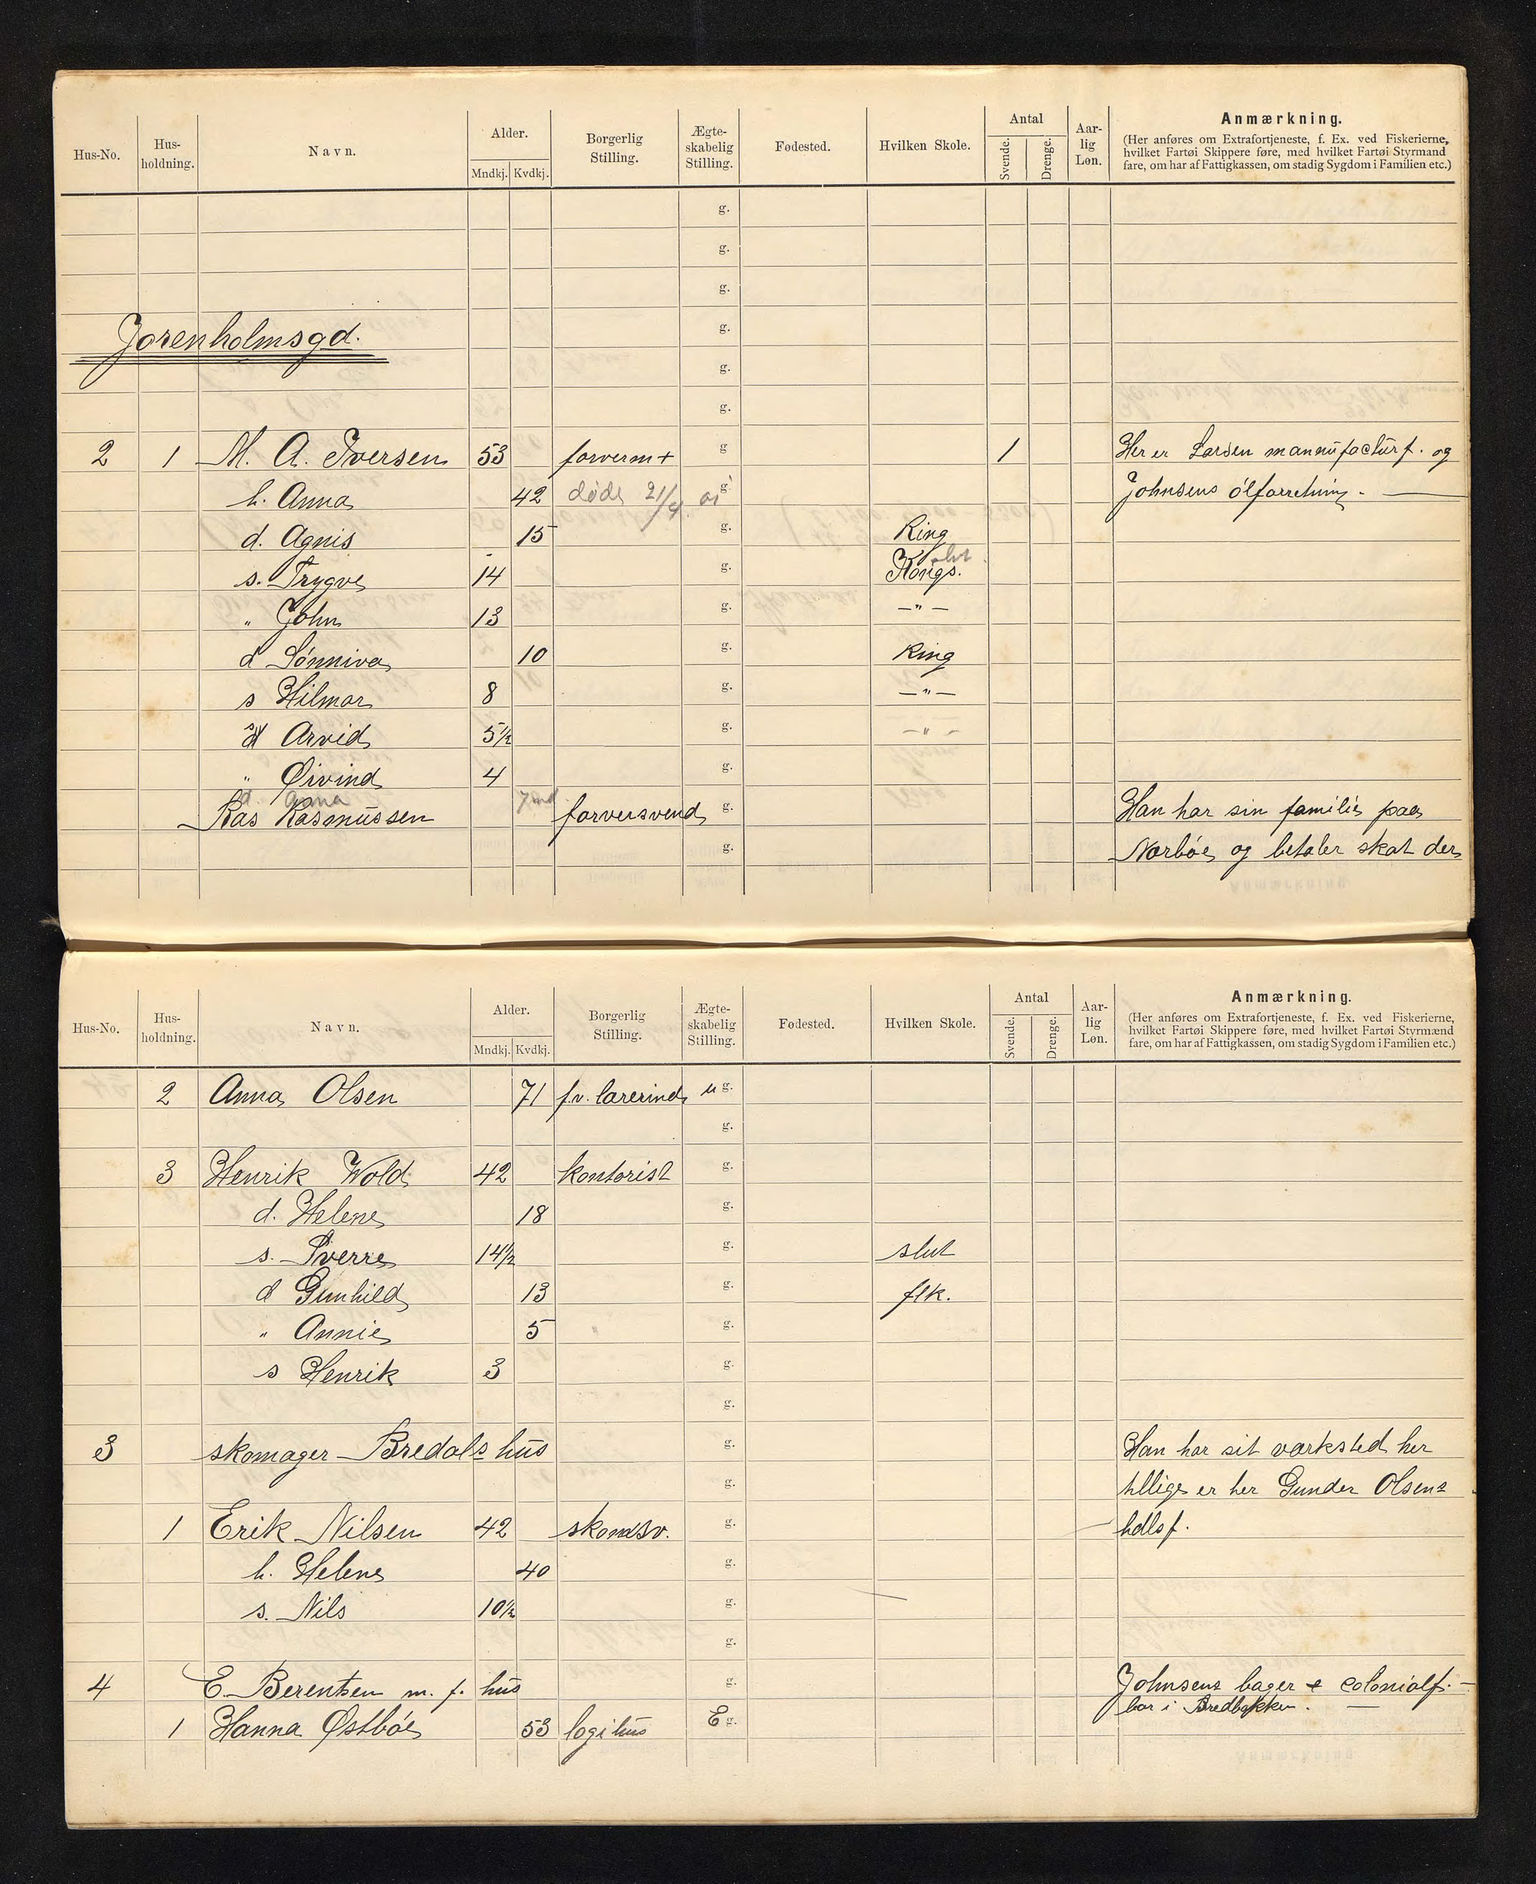 Hus-No. Hus-holdning. Navn. Alder. Mndkj. Kvdkj. Borgerlig Stilling. Ægte-skabelig Stilling. Fødested. Hvilken Skole. Antal Svende. Drenge. Aar-lig Løn. Anmærkning.
(Her anføres om Extrafortjeneste, f. Ex. ved Fiskerierne,
hvilket Fartøi Skippere føre, med hvilket Fartøi Styrmand
fare, om har af Fattigkassen, om stadig Sygdom i Familien etc.)
g.
g.
g.
Jorenholmsgd. g.
g.
g.
2 1 M. A. Iversen 53 farverm+ g 1 Her er Larsen mannüfactürf. og
h. Anna 42 døde 21/4 01 g. Johnsens ølforretning. —
d. Agnis 15 g. Ring
s. Trygve 14 g. Kongs. slut
„ John 13 g. —„—
d Sønniva 10 g. Ring
s Hilmar 8 g. —„—
s Arvid 5½ g. —„—
„ Øivind 4 g.
d. Anna 7 md
Ras Rasmüssen farversvend g. Han har sin familie paa
g. Norbøe og betaler skat der
Hus-No. Hus-holdning. Navn. Alder. Mndkj. Kvdkj. Borgerlig Stilling. Ægte-skabelig Stilling. Fødested. Hvilken Skole. Antal Svende. Drenge. Aar-lig Løn. Anmærkning.
(Her anføres om Extrafortjeneste, f. Ex. ved Fiskerierne,
hvilket Fartøi Skippere føre, med hvilket Fartøi Styrmænd
fare, om har af Fattigkassen, om stadig Sygdom i Familien etc.)
2 Anna Olsen 71 fv. lærerind u g.
g.
3 Henrik Wold 42 kontorist g.
d. Helene 18 g.
s. Sverre 14½ g. slut
d Gunhild 13 g. flk.
„ Annie 5 g.
s Henrik 3 g.
g.
3 skomager Bredals hüs g. Han har sit værksted her
g. tillige er her Gunder Olsens
1 Erik Nilsen 42 skomsv. g. hdlsf.
h. Helene 40 g.
s. Nils 10½ g.
g.
4 E. Berentsen m. f. hüs g. Johnsens bager & colonialf. —
1 Hanna Østbøe 53 logihüs E g. bor i Bredbakken. —